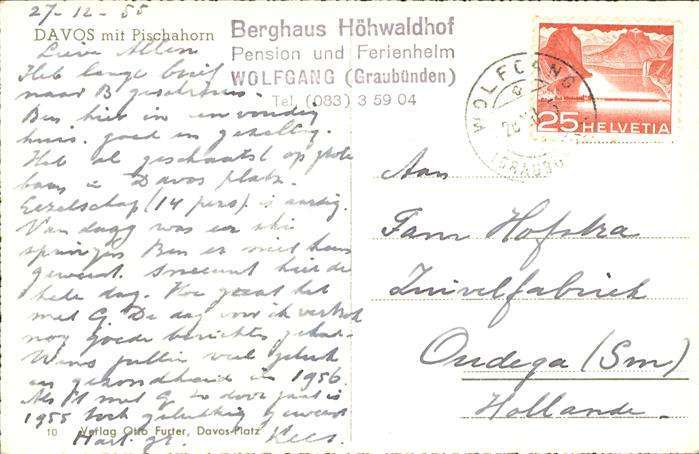 27-12-55
DAVOS mit Pischahorn
Berghaus Höhwaldhof
Pension und Ferienheim
WOLFGANG (Graubünden)
Tel. (083) 3 59 04
WOLFGANG
(GRAUB
25 HELVETIA
Lieve Allen
Heb lange brief
naar B geschreven.
Ben hier in eenvoudig
huis. goed en gezellig.
Heb al geschaatst op grote
baan in Davos platz.
Gezelschap (14 pers). is aardig.
Van daag was er ski
springen Ben er met hen
geweest. Sneeuwt hier de
hele dag. Hoe gaat het
met G. De dag voor ik vertrok
nog goede berichten gehad.
Wens jullie veel geluk
en gezondheid in 1956
Als het met G zo door gaat is
1955 toch gelukkig geweest
Hart. gr. Kees.
Aan
Fam Hofstra
Zuivelfabriek
Oudega (Sm)
Hollande.
10 Verlag Otto Furter, Davos-Platz